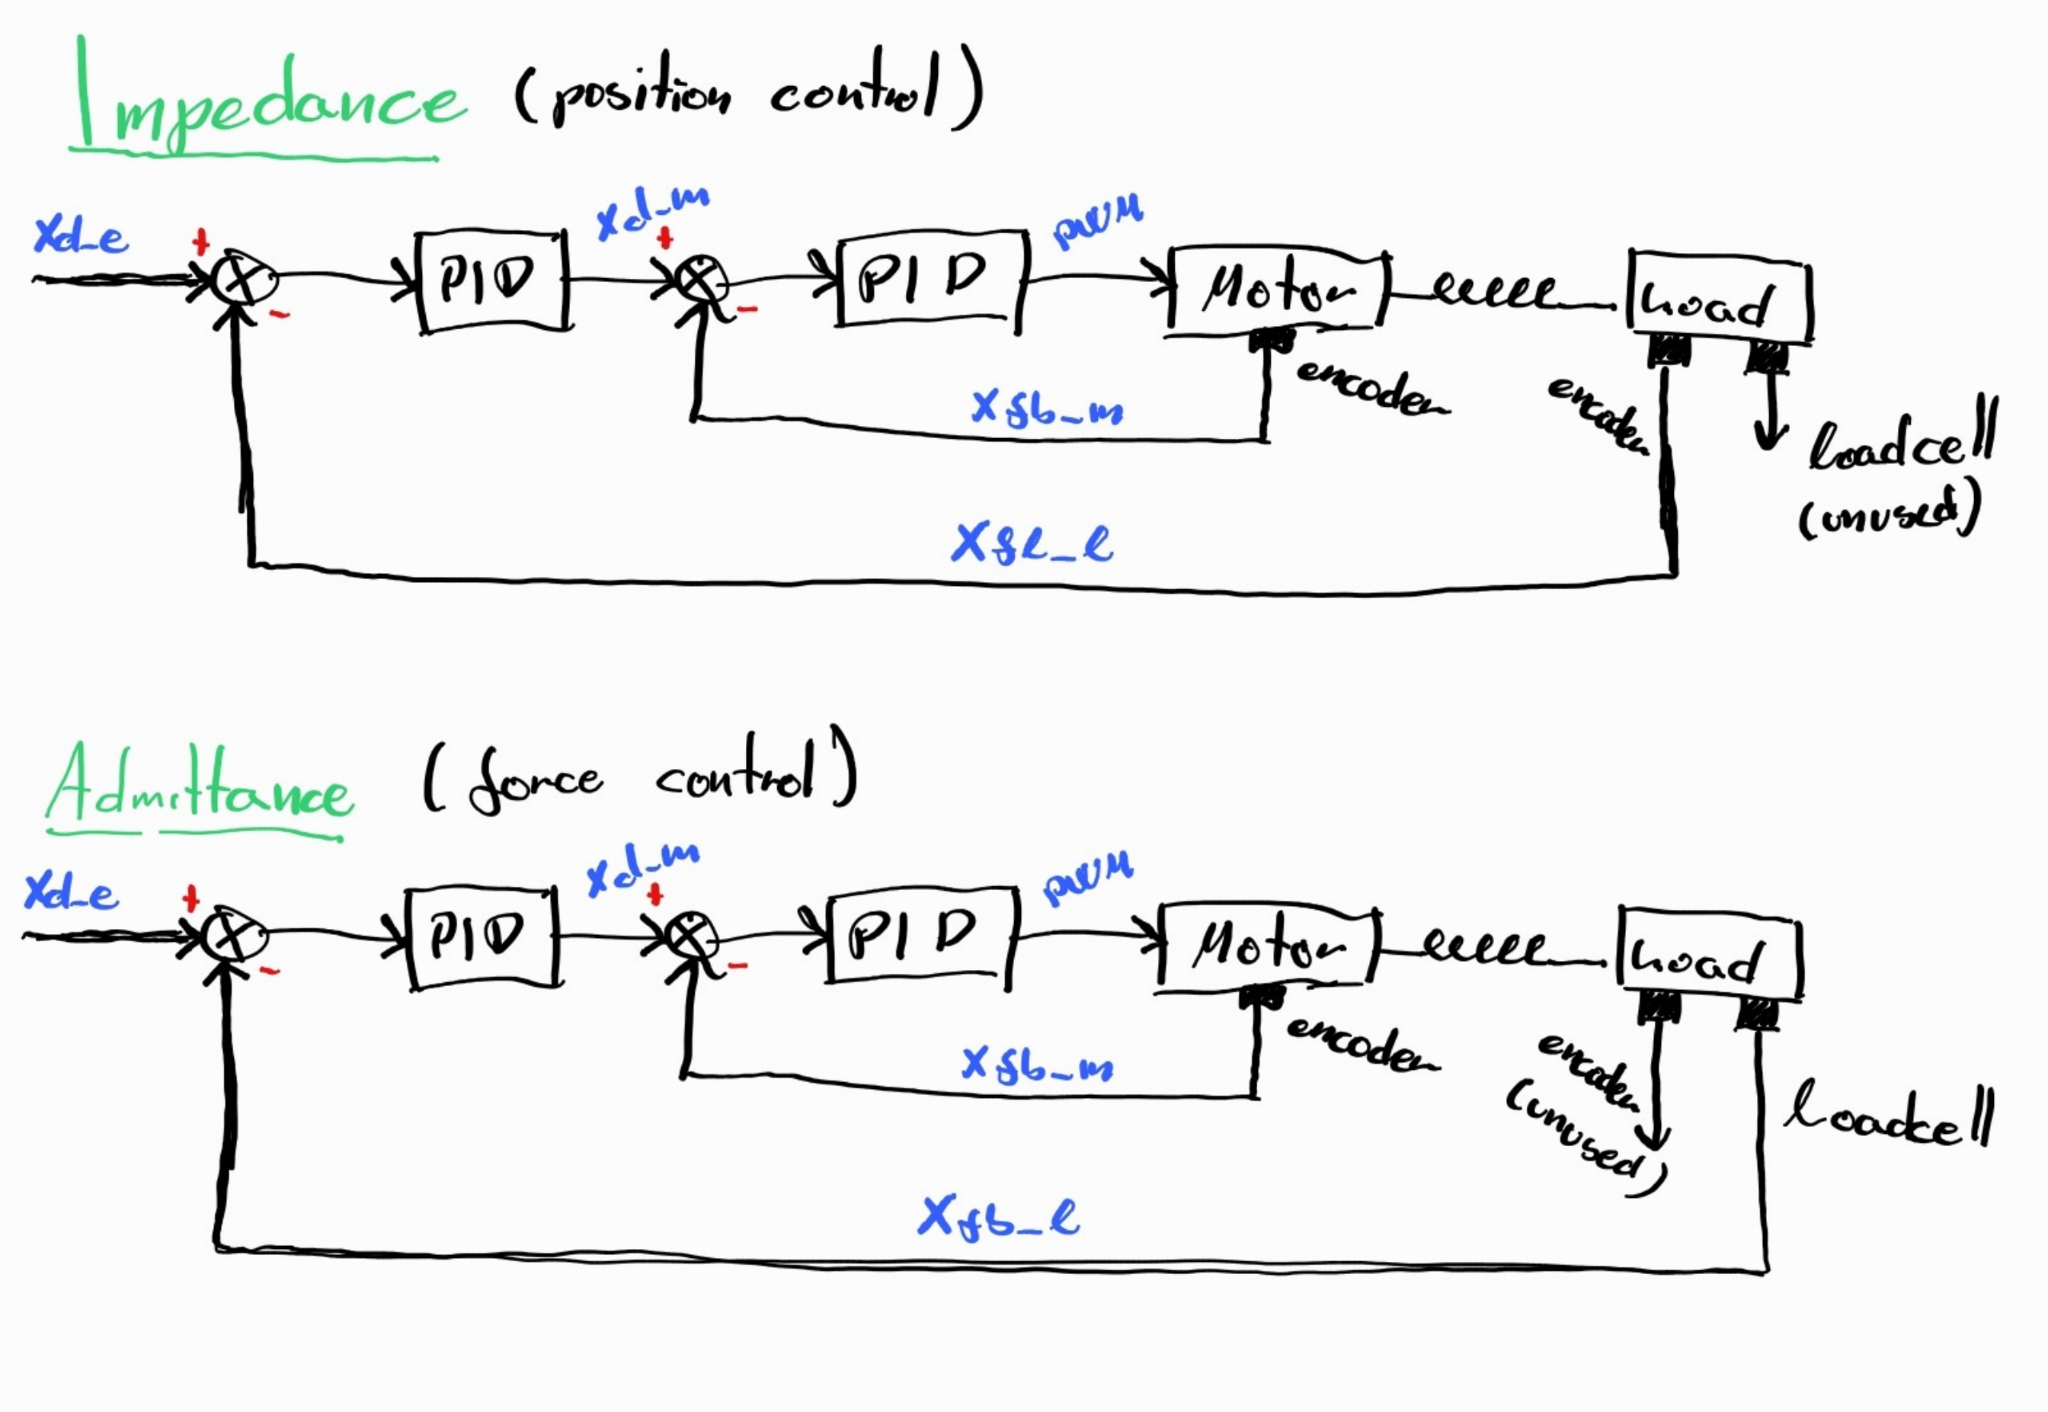 Impedance (position control)
Xd_e + - PID Xd_m + - PID PWM Motor Load
Xfb_m encoder encoder loadcell
(unused)
Xfl_l
Admittance (force control)
Xd_e + - PID Xd_m + - PID PWM Motor Load
Xfb_m encoder encoder
(unused) loadcell
Xfb_l